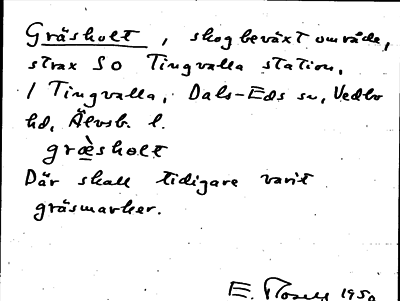 Gräsholt, skogbeväxt område,
strax SO Tingvalla station,
/ Tingvalla, Dals-Eds sn, Vedbo
hd, Älvsb. l.
græ̀sholt
Där skall tidigare varit
gräsmarker.
E. 1950